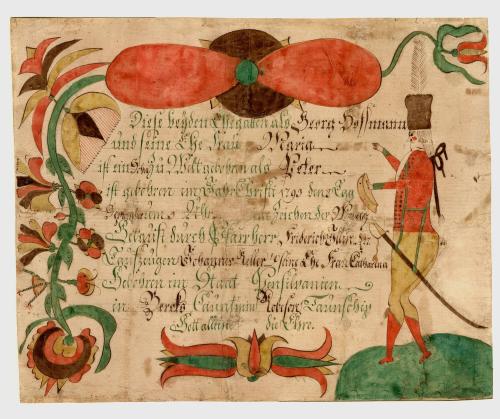 Diese beyden Ehegatten als Georg Hossmann
und seine Ehe Frau Maria
ist ein Sohn Zu Welt gebohren als Peter
ist gebohren im Jahr Christi 1793 den Tag
um Uhr im Zeichen der
Getauft durch Pfarrherr Friderich
Taufzeugen Johannes Keller seine Ehe Frau Catharina
Gebohren im Staat Pensilvanien
in Berks Caunty im Taunschip
Gott allein die Ehre.